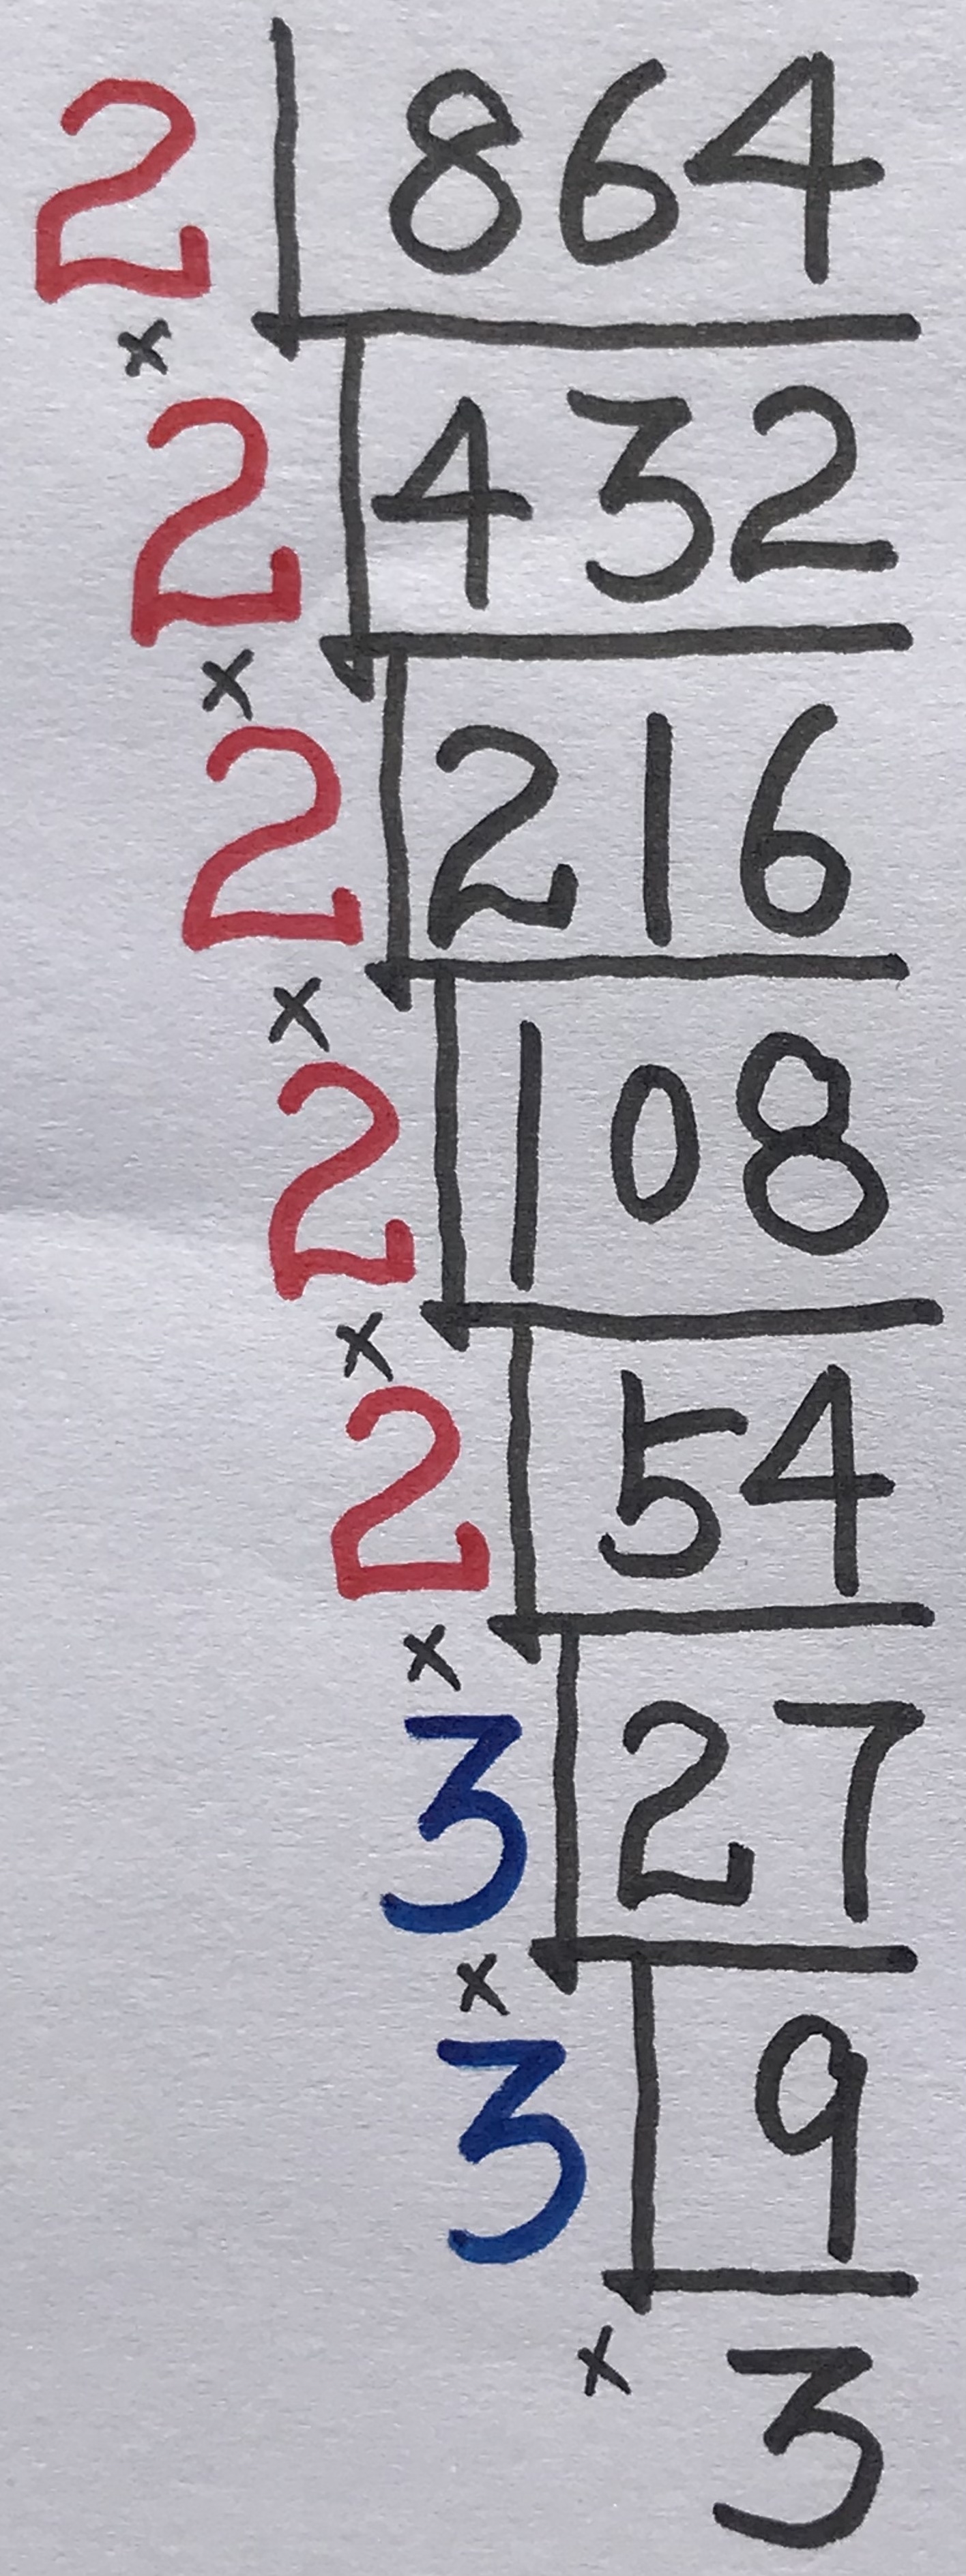 2 864
×
2 432
×
2 216
×
2 108
×
2 54
×
3 27
×
3 9
× 3